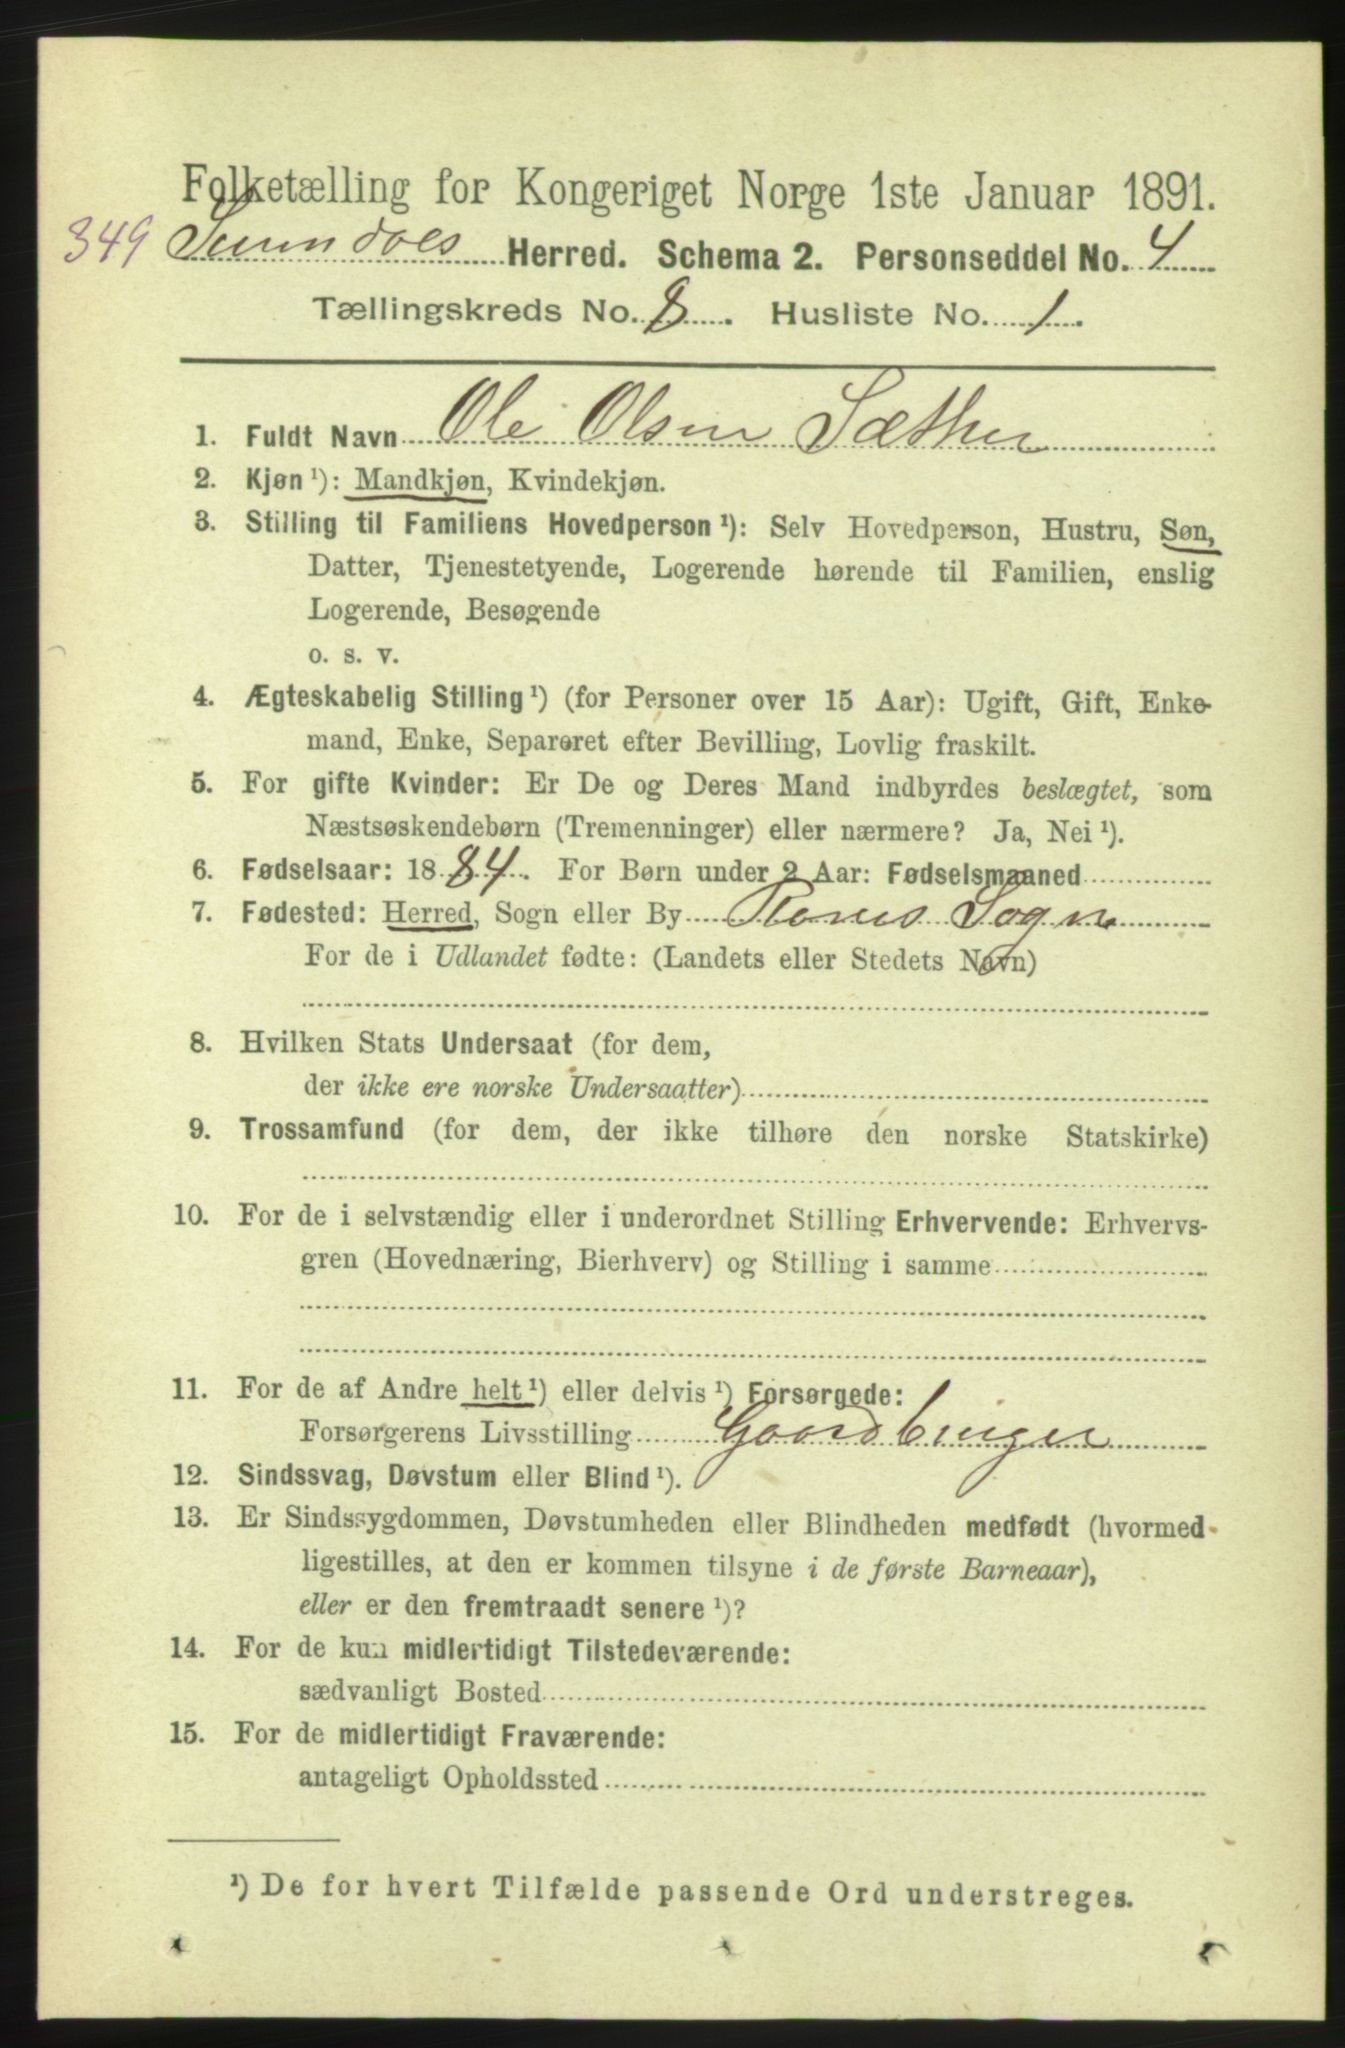 Folketælling for Kongeriget Norge 1ste Januar 1891.
349 Sunndals Herred. Schema 2. Personseddel No. 4
Tællingskreds No. 8. Husliste No. 1.
1. Fuldt Navn Ole Olsen Sæther
2. Kjøn ¹): Mandkjøn, Kvindekjøn.
3. Stilling til Familiens Hovedperson ¹): Selv Hovedperson, Hustru, Søn,
Datter, Tjenestetyende, Logerende hørende til Familien, enslig
Logerende, Besøgende
o. s. v.
4. Ægteskabelig Stilling ¹) (for Personer over 15 Aar): Ugift, Gift, Enke-
mand, Enke, Separeret efter Bevilling, Lovlig fraskilt.
5. For gifte Kvinder: Er De og Deres Mand indbyrdes beslægtet, som
Næstsøskendebørn (Tremenninger) eller nærmere? Ja, Nei ¹).
6. Fødselsaar: 1884. For Børn under 2 Aar: Fødselsmaaned
7. Fødested: Herred, Sogn eller By Sogn
For de i Udlandet fødte: (Landets eller Stedets Navn)
8. Hvilken Stats Undersaat (for dem,
der ikke ere norske Undersaatter)
9. Trossamfund (for dem, der ikke tilhøre den norske Statskirke)
10. For de i selvstændig eller i underordnet Stilling Erhvervende: Erhvervs-
gren (Hovednæring, Bierhverv) og Stilling i samme
11. For de af Andre helt ¹) eller delvis ¹) Forsørgede:
Forsørgerens Livsstilling Gaardbruger
12. Sindssvag, Døvstum eller Blind ¹).
13. Er Sindssygdommen, Døvstumheden eller Blindheden medfødt (hvormed
ligestilles, at den er kommen tilsyne i de første Barneaar),
eller er den fremtraadt senere ¹)?
14. For de kun midlertidigt Tilstedeværende:
sædvanligt Bosted
15. For de midlertidigt Fraværende:
antageligt Opholdssted
¹) De for hvert Tilfælde passende Ord understreges.